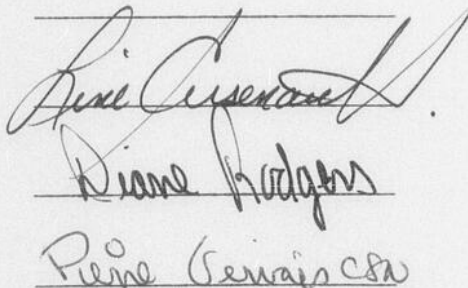 Line Arsenault
Diane Rodgers
Pierre Gervais CSN